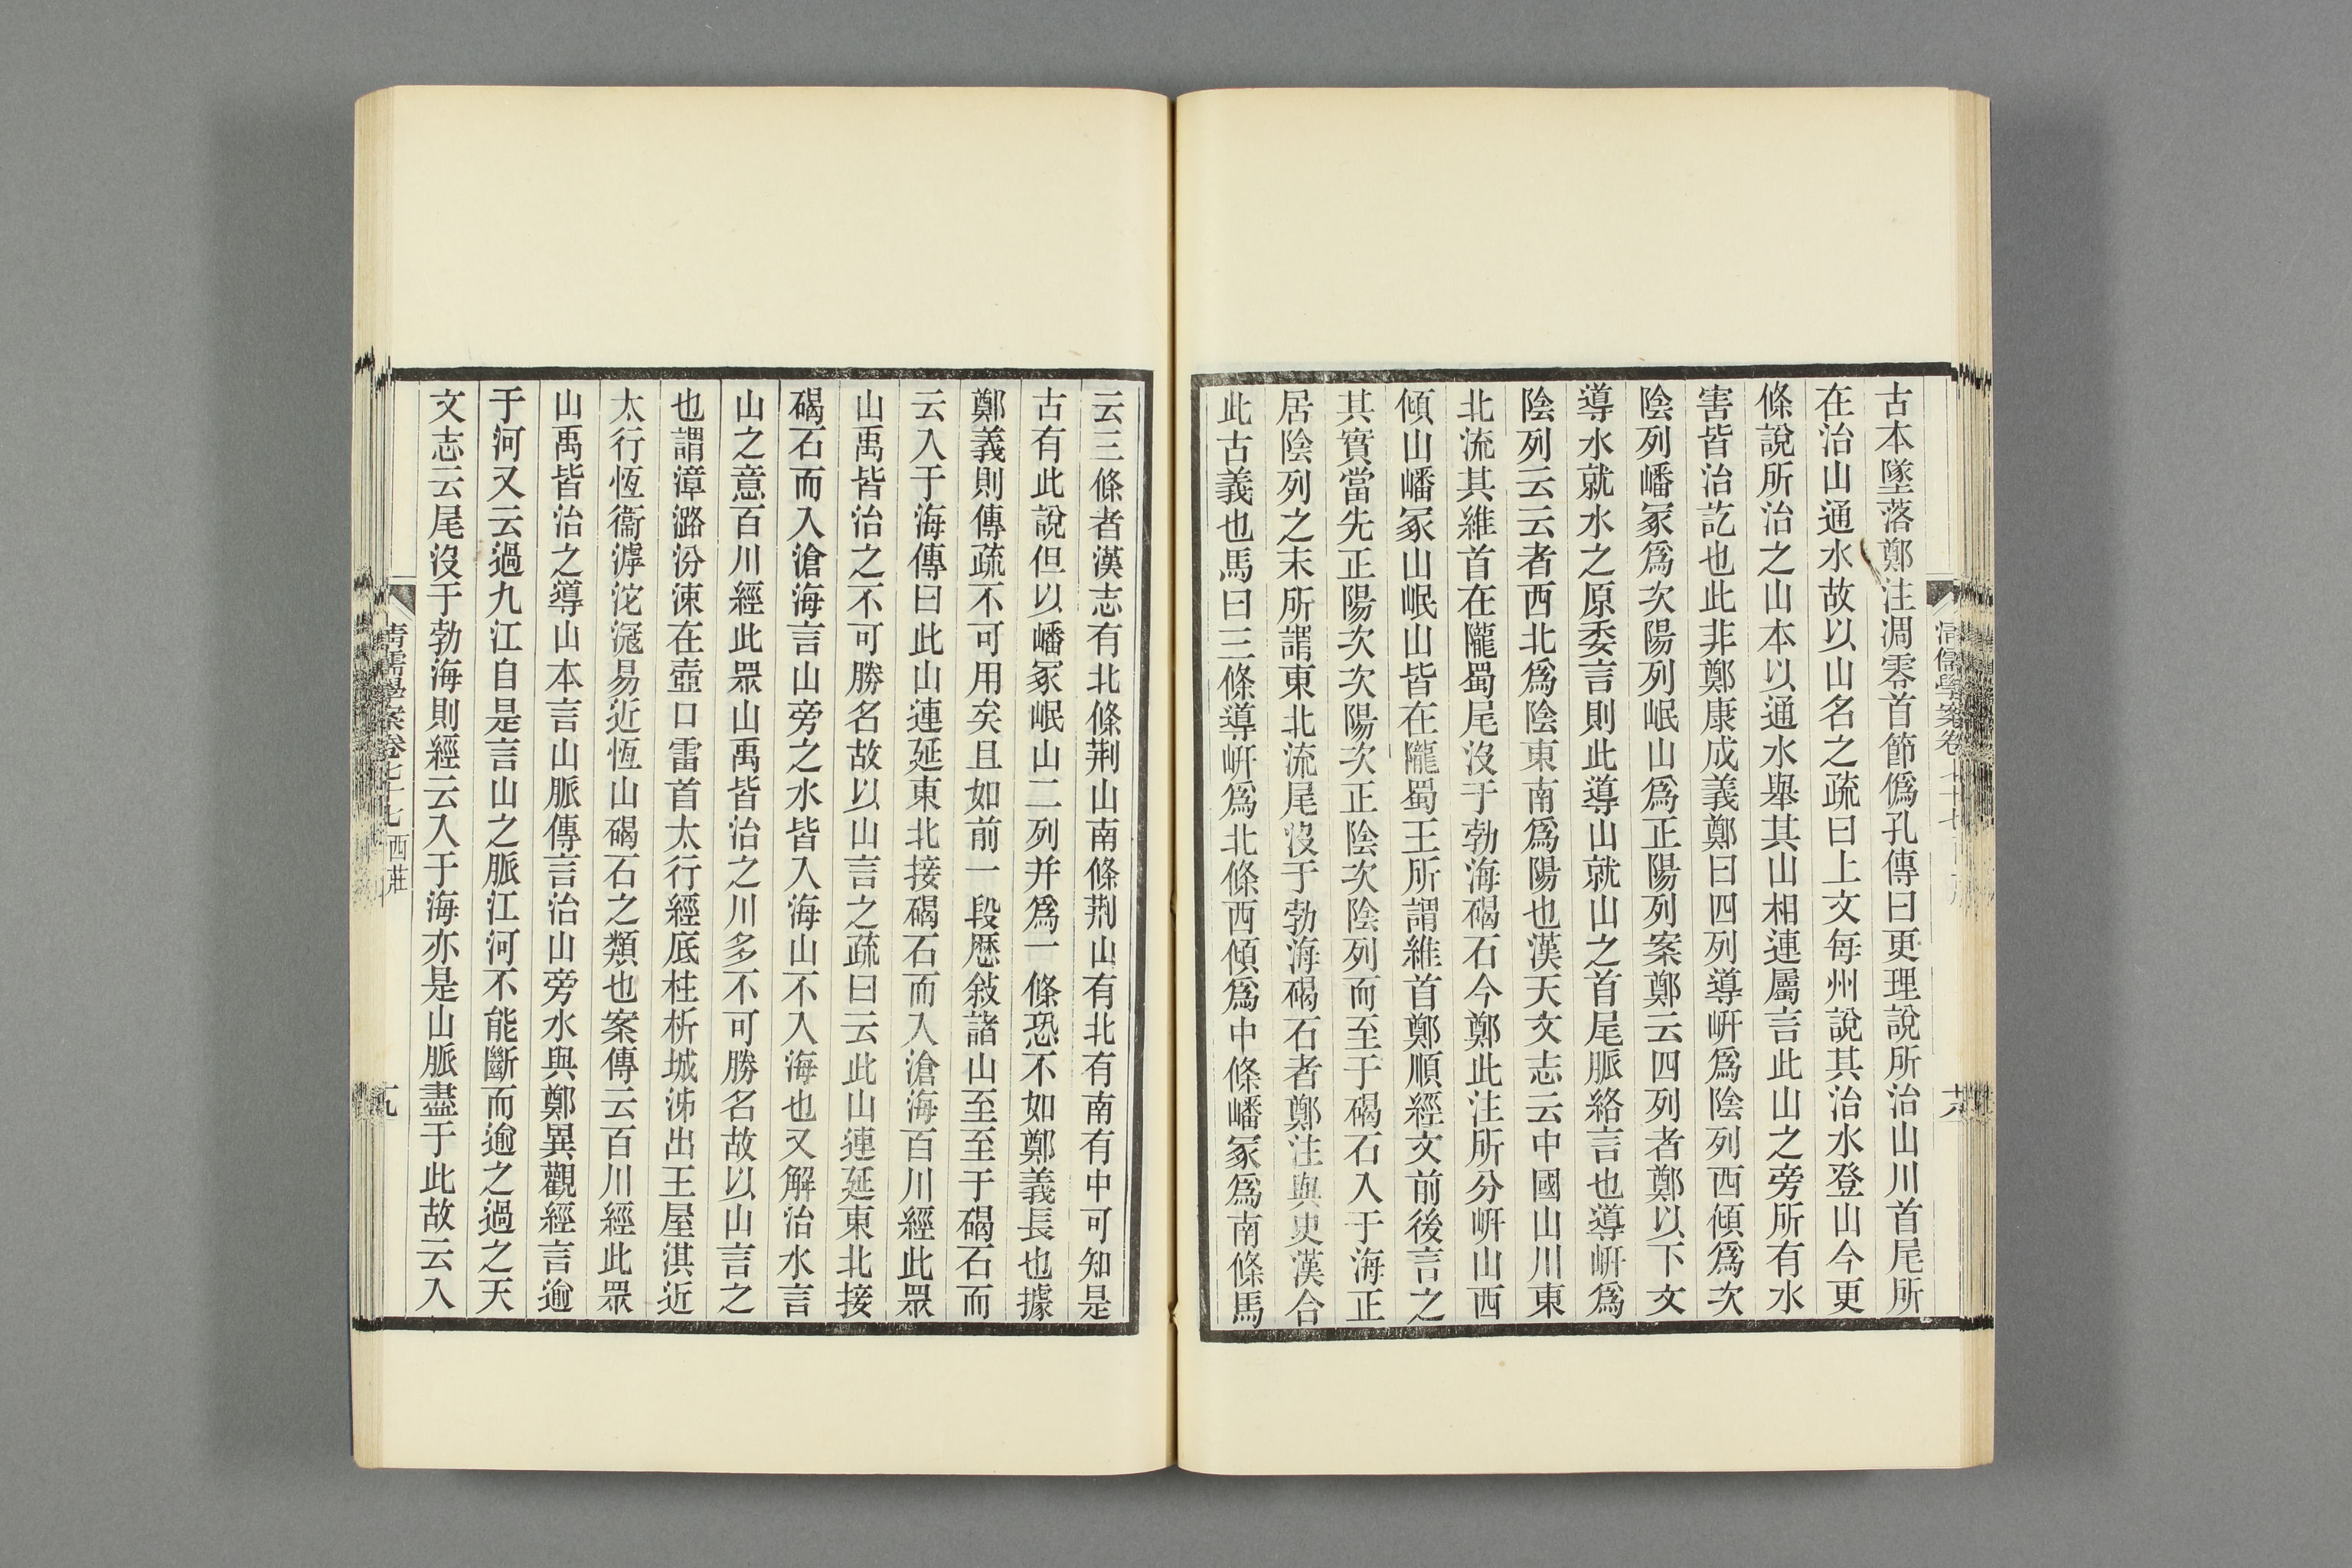 古本墜落鄭注凋零首節僞孔傳曰更理說所治山川首尾所
在治山通水故以山名之疏曰上文每州說其治水登山今更
條說所治之山本以通水舉其山相連屬言此山之旁所有水
害皆治訖也此非鄭康成義鄭曰四列導岍爲陰列西傾爲次
陰列嶓冢爲次陽列岷山爲正陽列案鄭云四列者鄭以下文
導水就水之原委言則此導山就山之首尾脈絡言也導岍爲
陰列云云者西北爲陰東南爲陽也漢天文志云中國山川東
北流其維首在隴蜀尾沒于勃海碣石今鄭此注所分岍山西
傾山嶓冢山岷山皆在隴蜀王所謂維首鄭順經文前後言之
其實當先正陽次次陽次正陰次陰列而至于碣石入于海正
居陰列之末所謂東北流尾沒于勃海碣石者鄭注與史漢合
此古義也馬曰三條導岍爲北條西傾爲中條嶓冢爲南條馬
云三條者漢志有北條荆山南條荆山有北有南有中可知是
古有此說但以嶓冢岷山二列并爲一條恐不如鄭義長也據
鄭義則傳疏不可用矣且如前一段歷敍諸山至至于碣石而
云入于海傳曰此山連延東北接碣石而入滄海百川經此眾
山禹皆治之不可勝名故以山言之疏曰云此山連延東北接
碣石而入滄海言山旁之水皆入海山不入海也又解治水言
山之意百川經此眾山禹皆治之川多不可勝名故以山言之
也謂漳潞汾涑在壺口雷首太行經底柱析城沛出王屋淇近
太行恆衞滹沱滱易近恆山碣石之類也案傳云百川經此眾
山禹皆治之導山本言山脈傳言治山旁水與鄭異觀經言逾
于河又云過九江自是言山之脈江河不能斷而逾之過之天
文志云尾沒于勃海則經云入于海亦是山脈盡于此故云入
清儒學案卷七十七 西莊